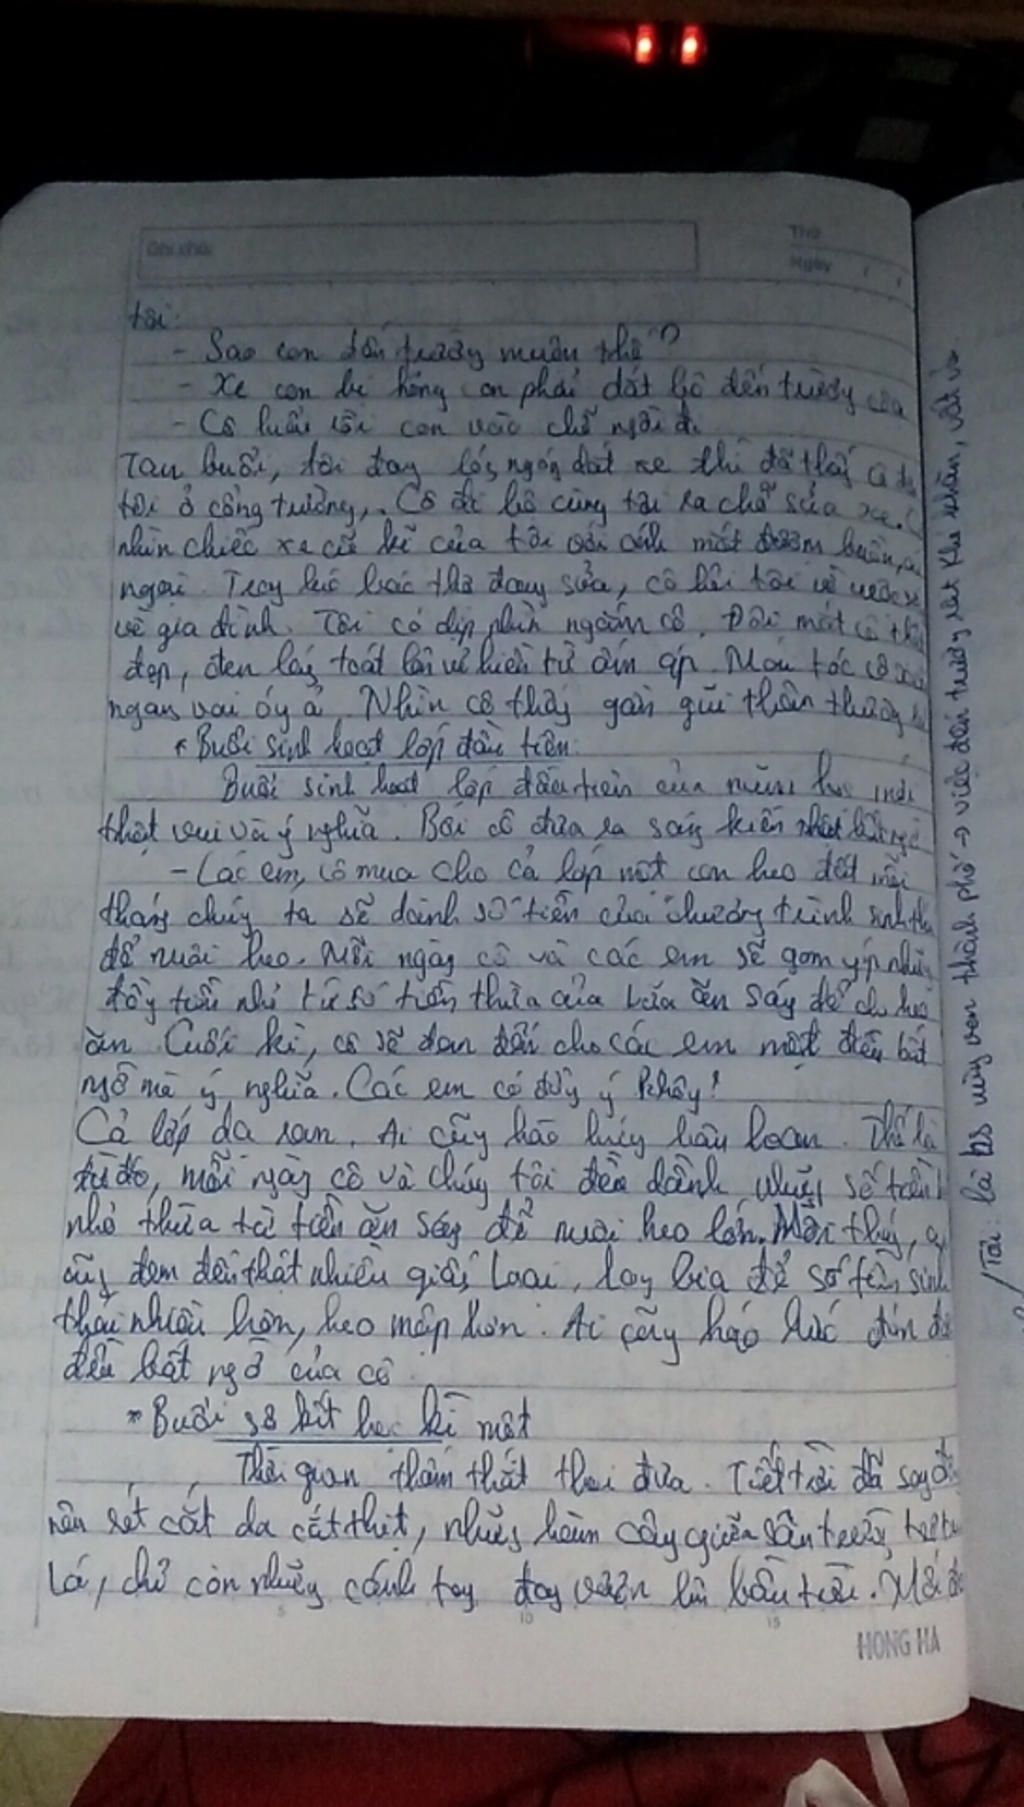 Ghi chú:
Thứ
Ngày / /
tôi:
- Sao con đến trường muộn thế?
- Xe con bị hỏng con phải dắt bộ đến trường cô ạ
- Cô hiểu rồi con vào chỗ ngồi đi
Tan buổi, tôi đang lóng ngóng dắt xe thì đã thấy cô
tôi ở cổng trường. Cô đi bộ cùng tôi ra chỗ sửa xe.
nhìn chiếc xe cũ kĩ của tôi với ánh mắt đượm buồn, ái
ngại. Trong lúc bác thợ đang sửa, cô hỏi tôi về
về gia đình. Tôi có dịp nhìn ngắm cô. Đôi mắt cô
đẹp, đen láy toát lên vẻ hiền từ ấm áp. Mái tóc cô
ngang vai óng ả. Nhìn cô thấy gần gũi thân thương
* Buổi sinh hoạt lớp đầu tiên:
Buổi sinh hoạt lớp đầu tiên của năm học mới
thật vui và ý nghĩa. Bởi cô đưa ra sáng kiến thật bất ngờ
- Các em, cô mua cho cả lớp một con heo đất mỗi
tháng chúng ta sẽ dành số tiền của chương trình sinh thái
để nuôi heo. Mỗi ngày cô và các em sẽ gom góp những
đồng tiền nhỏ từ số tiền thừa của bữa ăn sáng để cho heo
ăn. Cuối kì, cô sẽ đem đến cho các em một điều bất
ngờ mà ý nghĩa. Các em có đồng ý không!
Cả lớp dạ ran. Ai cũng háo hứng hân hoan. Thế là
từ đó, mỗi ngày cô và chúng tôi đều dành những số tiền
nhỏ thừa từ tiền ăn sáng để nuôi heo lớn. Mỗi tháng,
cũng đem đến thật nhiều giấy loại, lon bia để số tiền sinh
thái nhiều hơn, heo mập hơn. Ai cũng háo hức đón đợi
điều bất ngờ của cô
* Buổi sơ kết học kì một
Thời gian thấm thoắt thoi đưa. Tiết trời đã sang đông
nên rét cắt da cắt thịt, những hàng cây giữa sân trường
lá, chỉ còn những cánh tay đang vươn lên bầu trời.
HONG HA
Tôi: là hs vùng ven thành phố → việc đến trường rất khó khăn, vất vả